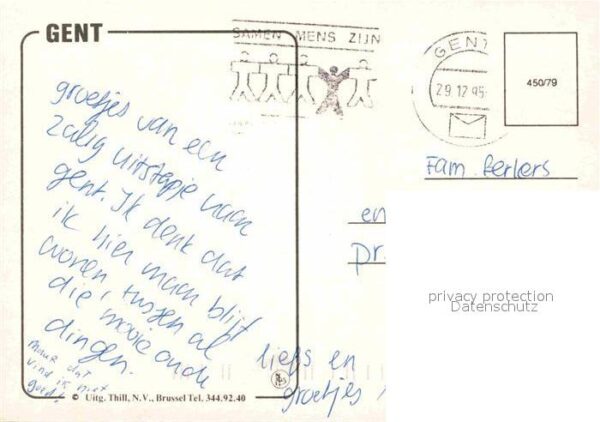 GENT
SAMEN MENS ZIJN
GENT
29.12.95
450/79
groetjes van een
zalig uitstapje naar
gent. Ik denk dat
ik hier maar blijf
wonen, tussen al
die mooie oude
dingen.
maar dat
vind ik niet
goed!
Fam.
en
pr
privacy protection
Datenschutz
liefs en
groetjes
© Uitg. Thill, N.V., Brussel Tel. 344.92.40